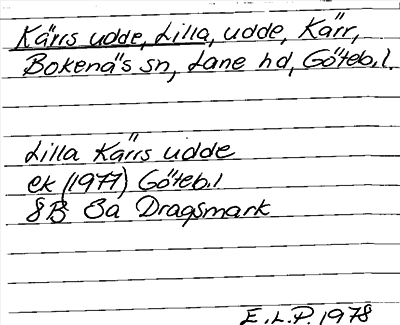 Kärrs udde, Lilla, udde, Kärr,
Bokenäs sn, Lane hd, Göteb.l.
Lilla Kärrs udde
ek (1977) Göteb.l
8B 8a Dragsmark
E.L.P. 1978